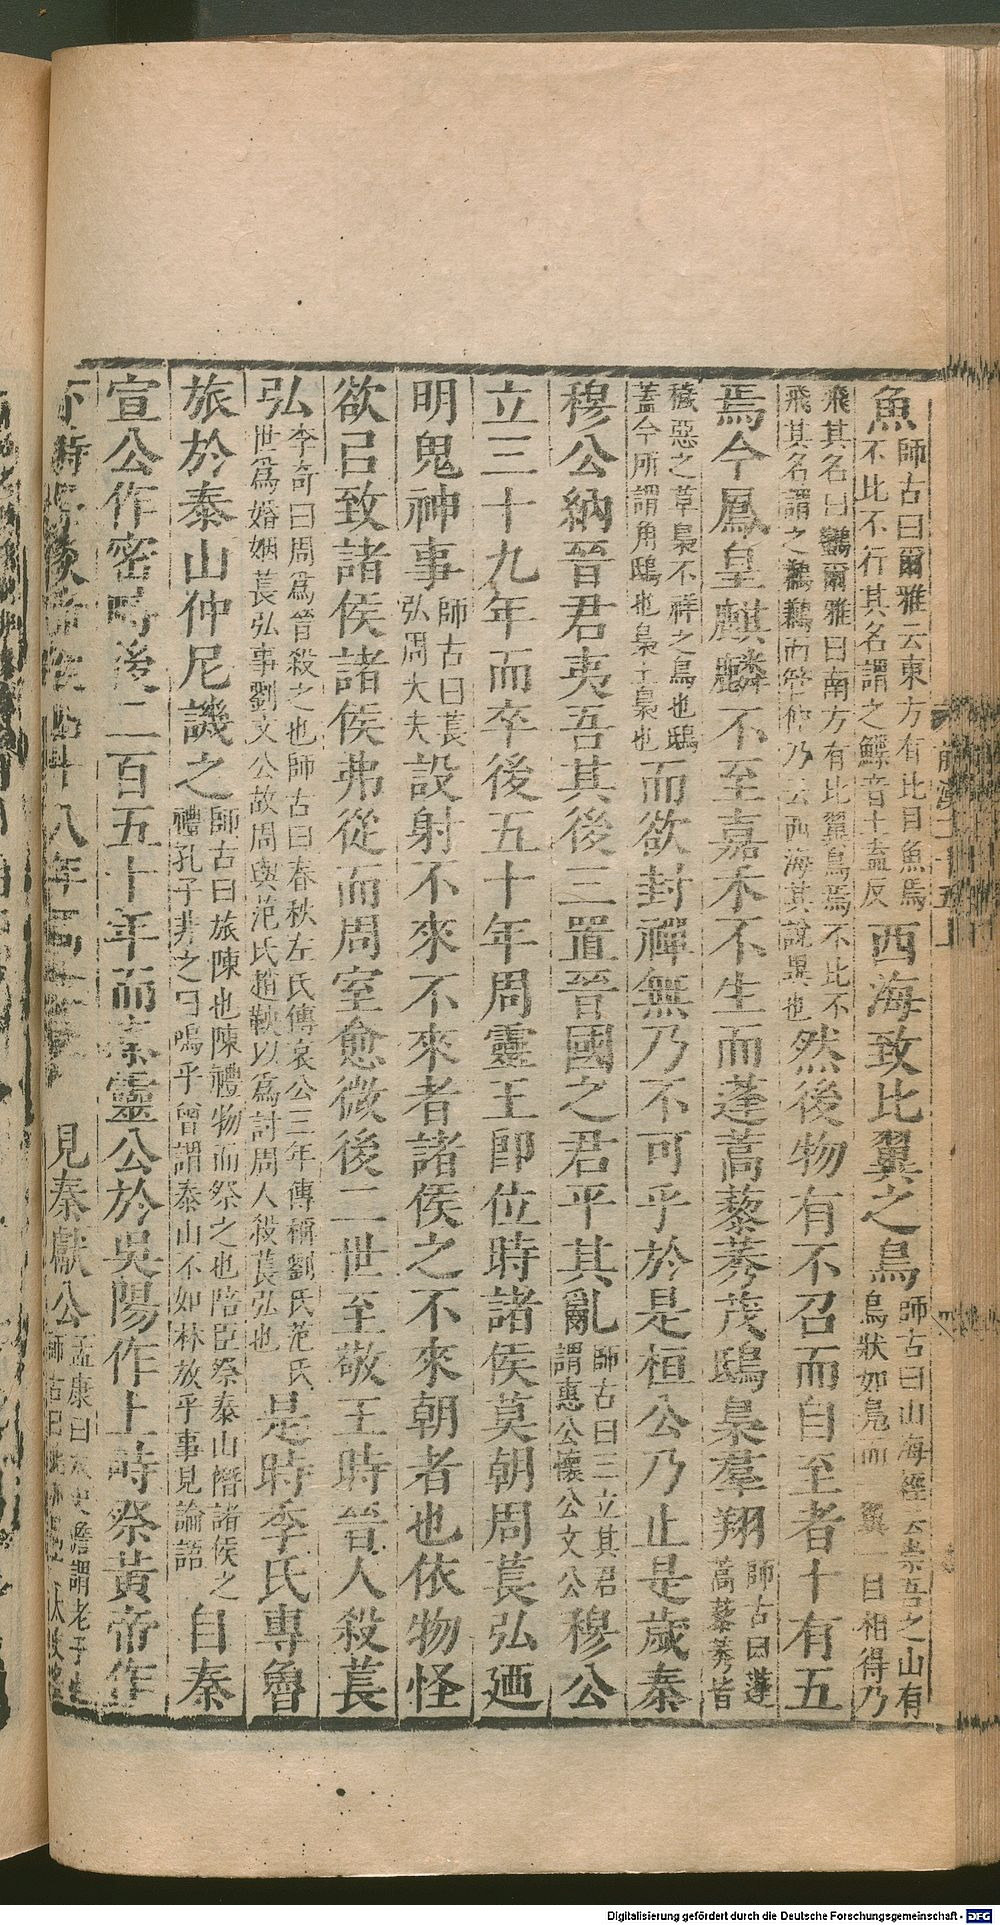 魚師古曰爾雅云東方有比目魚焉不比不行其名謂之鰈音土盍反西海致比翼之鳥師古曰山海經云崇吾之山有鳥狀如鳧而翼一目相得乃
飛其名曰鶼爾雅曰南方有比翼鳥焉不比不飛其名謂之鶼鶼而管仲乃云西海其說異也然後物有不召而自至者十有五
焉今鳳皇麒麟不至嘉禾不生而蓬蒿藜莠茂鴟梟羣翔師古曰蓬蒿藜莠皆
穢惡之草梟不祥之鳥也鴟蓋今所謂角鴟也梟土梟也而欲封禪無乃不可乎於是桓公乃止是歲秦
穆公納晉君夷吾其後三置晉國之君平其亂師古曰三立其君謂惠公懷公文公穆公
立三十九年而卒後五十年周靈王卽位時諸侯莫朝周萇弘廼
明鬼神事師古曰萇弘周大夫設射不來不來者諸侯之不來朝者也依物怪
欲㠯致諸侯諸侯弗從而周室愈微後二世至敬王時晉人殺萇
弘李奇曰周爲晉殺之也師古曰春秋左氏傳哀公三年傳稱劉氏范氏世爲婚姻萇弘事劉文公故周與范氏趙鞅以爲討周人殺萇弘也是時季氏專魯
旅於泰山仲尼譏之師古曰旅陳也陳禮物而祭之也陪臣祭泰山僭諸侯之禮孔子非之曰嗚乎曾謂泰山不如林放乎事見論語自秦
宣公作密畤後二百五十年而秦靈公於吳陽作上畤祭黃帝作
下畤祭炎帝後四十八年周太史見秦獻公孟康曰太史儋謂老子也師古曰
前漢二十五上
四
Digitalisierung gefördert durch die Deutsche Forschungsgemeinschaft - DFG